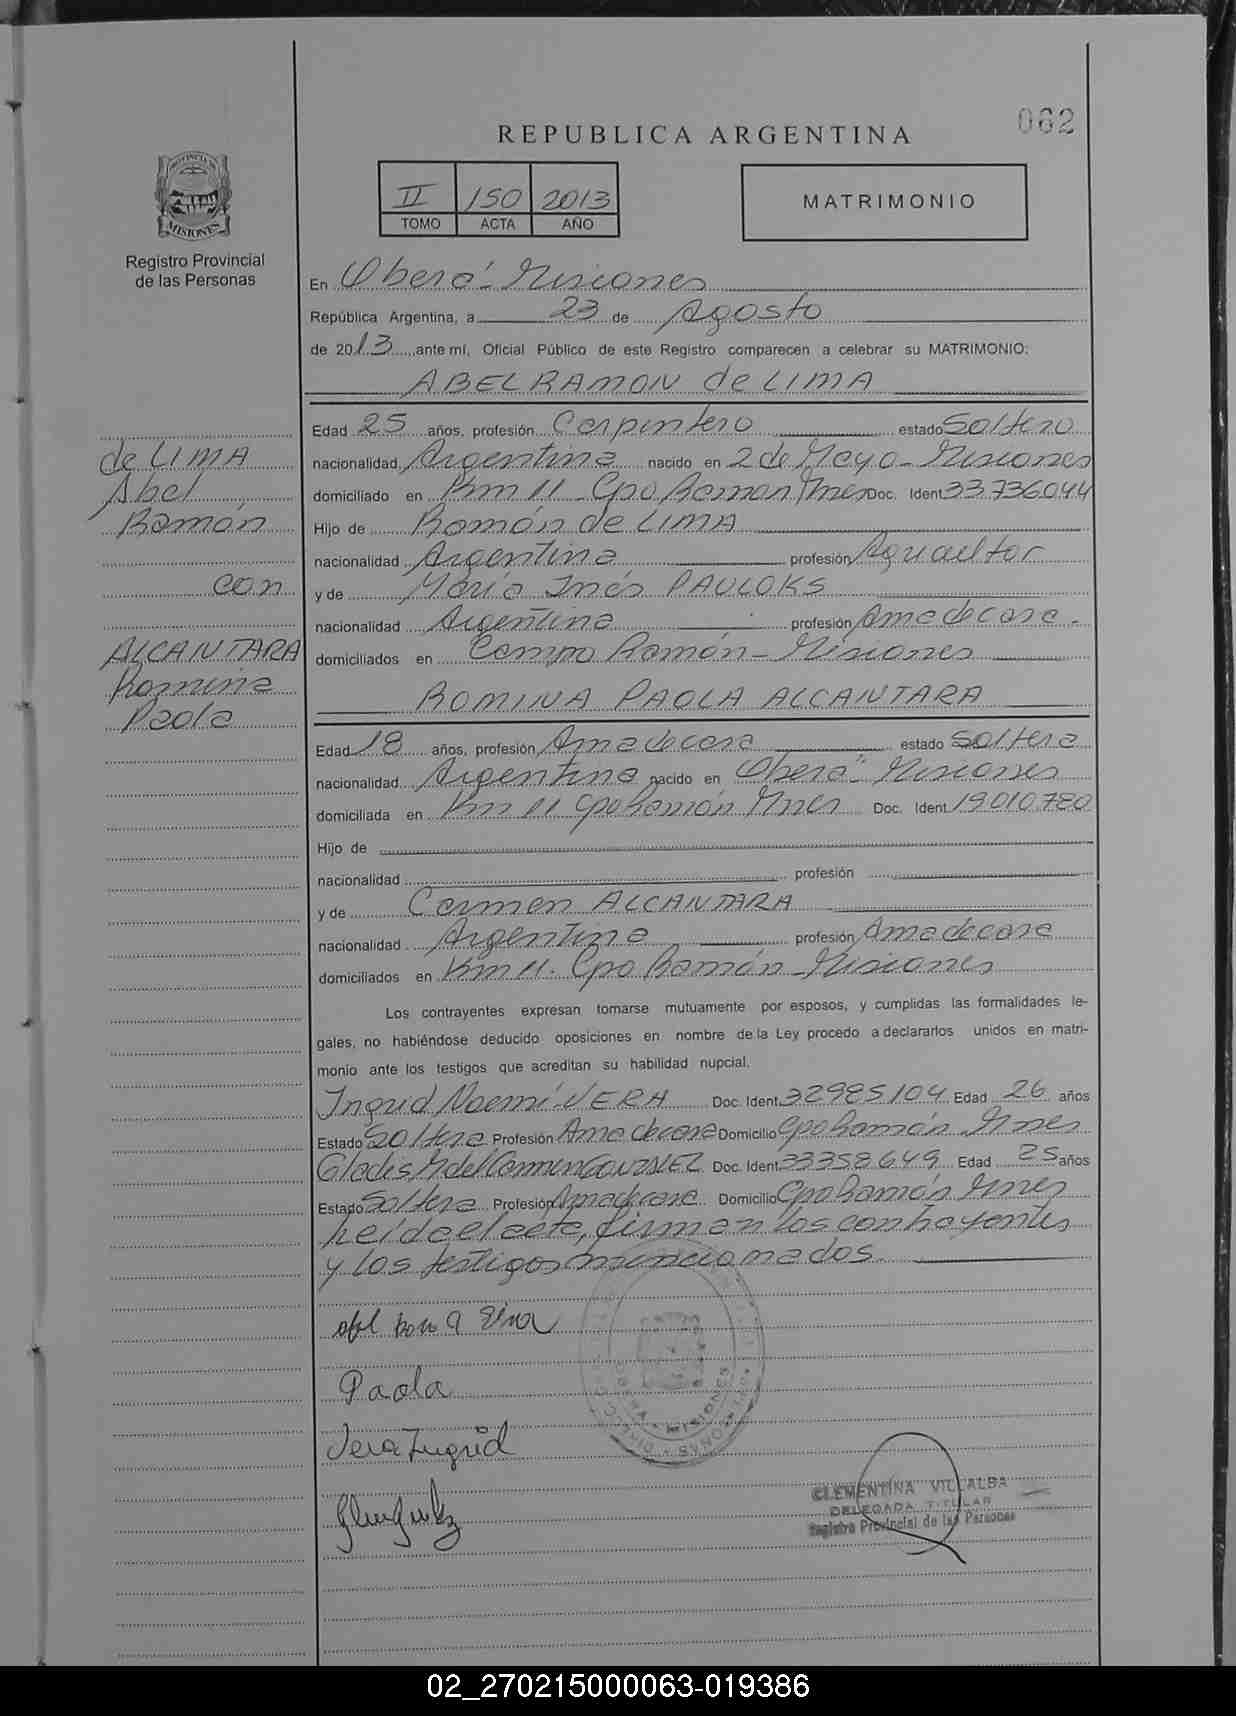 062
REPUBLICA ARGENTINA
II 150 2013
TOMO ACTA AÑO
MATRIMONIO
PROVINCIA DE
MISIONES
Registro Provincial
de las Personas
En Oberá - Misiones
República Argentina, a 23 de Agosto
de 2013 ante mí, Oficial Público de este Registro comparecen a celebrar su MATRIMONIO:
ABEL RAMON de LIMA
Edad 25 años, profesión Carpintero estado Soltero
nacionalidad Argentina nacido en 2 de Mayo - Misiones
domiciliado en Km 11 - Cpo Ramon Mnes Doc. Ident 33.736.044
Hijo de Ramón de LIMA
nacionalidad Argentina profesión Agricultor
y de María Inés PAULOKS
nacionalidad Argentina profesión Ama de casa -
domiciliados en Campo Ramón - Misiones
ROMINA PAOLA ALCANTARA
Edad 18 años, profesión Ama de casa estado Soltera
nacionalidad Argentina nacido en Oberá - Misiones
domiciliada en Km 11 Cpo Ramón Mnes Doc. Ident 19.010.780
Hijo de
nacionalidad profesión
y de Carmen ALCANTARA
nacionalidad Argentina profesión Ama de casa
domiciliados en Km 11. Cpo Ramón - Misiones
Los contrayentes expresan tomarse mutuamente por esposos, y cumplidas las formalidades le-
gales, no habiéndose deducido oposiciones en nombre de la Ley procedo a declararlos unidos en matri-
monio ante los testigos que acreditan su habilidad nupcial.
Ingrid Noemí VERA Doc. Ident. 32985104 Edad 26 años
Estado Soltera Profesión Ama de casa Domicilio Cpo Ramón Mnes
Glades M del Carmen GONZALEZ Doc. Ident. 33358649 Edad 25 años
Estado Soltera Profesión Ama de casa Domicilio Cpo Ramón Mnes
Leída el acta, firman los contrayentes
y los testigos mencionados.
de LIMA
Abel
Ramón
con
ALCANTARA
Romina
Paola
Paola
Vera Ingrid
MISIONES
CLEMENTINA VILLALBA
DELEGADA TITULAR
Registro Provincial de las Personas
02_270215000063-019386